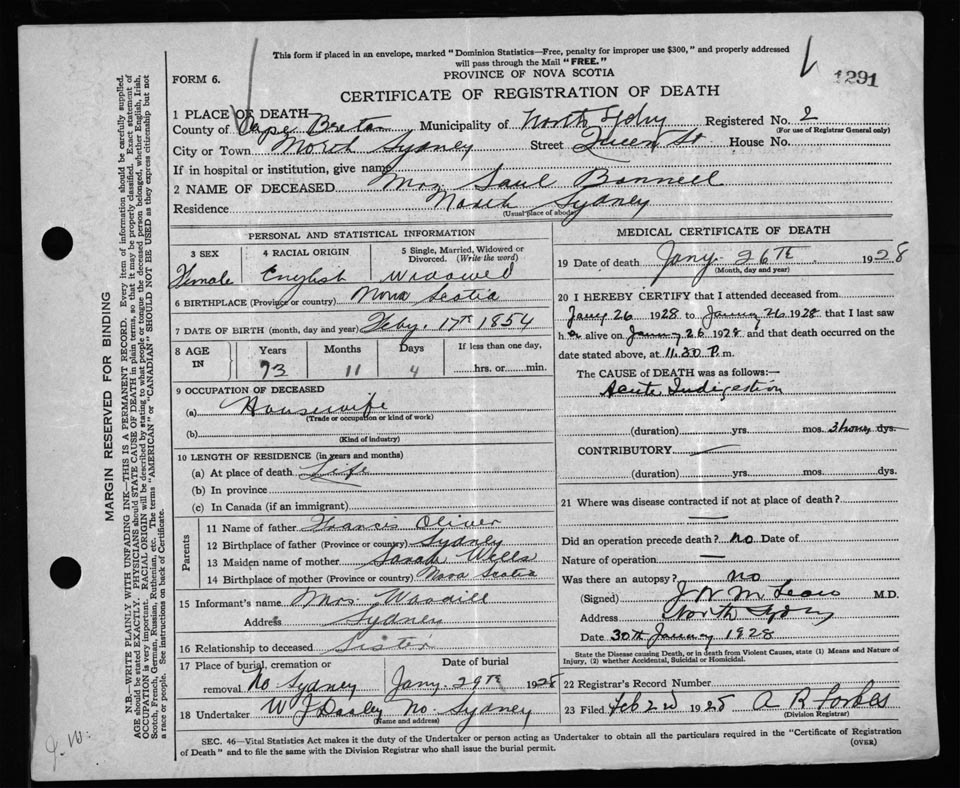 This form if placed in an envelope, marked "Dominion Statistics—Free, penalty for improper use $300," and properly addressed
will pass through the Mail "FREE."
FORM 6.
PROVINCE OF NOVA SCOTIA
1291
CERTIFICATE OF REGISTRATION OF DEATH
1 PLACE OF DEATH
County of Cape Breton Municipality of North Sydney Registered No. 2
(For use of Registrar General only)
City or Town North Sydney Street Queen St House No.
If in hospital or institution, give name
2 NAME OF DECEASED Mrs Saul Bonnell
Residence North Sydney
(Usual place of abode)
PERSONAL AND STATISTICAL INFORMATION
3 SEX 4 RACIAL ORIGIN 5 Single, Married, Widowed or Divorced. (Write the word)
Female English Widowed
6 BIRTHPLACE (Province or country) Nova Scotia
7 DATE OF BIRTH (month, day and year) Feby. 17th 1854
8 AGE IN Years Months Days If less than one day,
73 11 4 hrs. or min.
9 OCCUPATION OF DECEASED
(a) Housewife
(Trade or occupation or kind of work)
(b)
(Kind of industry)
10 LENGTH OF RESIDENCE (in years and months)
(a) At place of death Life
(b) In province
(c) In Canada (if an immigrant)
Parents
11 Name of father Francis Oliver
12 Birthplace of father (Province or country) Sydney
13 Maiden name of mother Sarah Wells
14 Birthplace of mother (Province or country) Nova Scotia
15 Informant's name Mrs
Address Sydney
16 Relationship to deceased Sister
17 Place of burial, cremation or Date of burial
removal No Sydney Jany. 29th 1928
18 Undertaker W J Dooley No. Sydney
(Name and address)
MEDICAL CERTIFICATE OF DEATH
19 Date of death Jany. 26th 1928
(Month, day and year)
20 I HEREBY CERTIFY that I attended deceased from
Jany 26 1928 to January 26 1928 that I last saw
her alive on January 26 1928 and that death occurred on
date stated above, at 11.30 P.m.
The CAUSE of DEATH was as follows:—
Acute Indigestion
(duration) yrs. mos. 3 hours dys.
CONTRIBUTORY —
(duration) yrs. mos. dys.
21 Where was disease contracted if not at place of death?
—
Did an operation precede death? no Date of
Nature of operation —
Was there an autopsy? no
(Signed) M.D.
Address North Sydney
Date 30th January 1928
State the Disease causing Death, or in death from Violent Causes, state (1) Means and Nature of
Injury, (2) whether Accidental, Suicidal or Homicidal.
22 Registrar's Record Number
23 Filed Feb 2nd 1928 A R Forbes
(Division Registrar)
SEC. 46—Vital Statistics Act makes it the duty of the Undertaker or person acting as Undertaker to obtain all the particulars required in the "Certificate of Registration
of Death" and to file the same with the Division Registrar who shall issue the burial permit.
(OVER)
MARGIN RESERVED FOR BINDING
N.B.—WRITE PLAINLY WITH UNFADING INK—THIS IS A PERMANENT RECORD. Every item of information should be carefully supplied.
AGE should be stated EXACTLY. PHYSICIANS should STATE CAUSE OF DEATH in plain terms, so that it may be properly classified. Exact statement of
OCCUPATION is very important. RACIAL ORIGIN will be described by stating to what people or tongue the deceased person belonged, whether English, Irish,
Scotch, French, German, Russian, Ruthenian, etc. The terms "AMERICAN" or "CANADIAN" SHOULD NOT BE USED as they express citizenship but not
a race or people. See instructions on back of Certificate.
J.W.